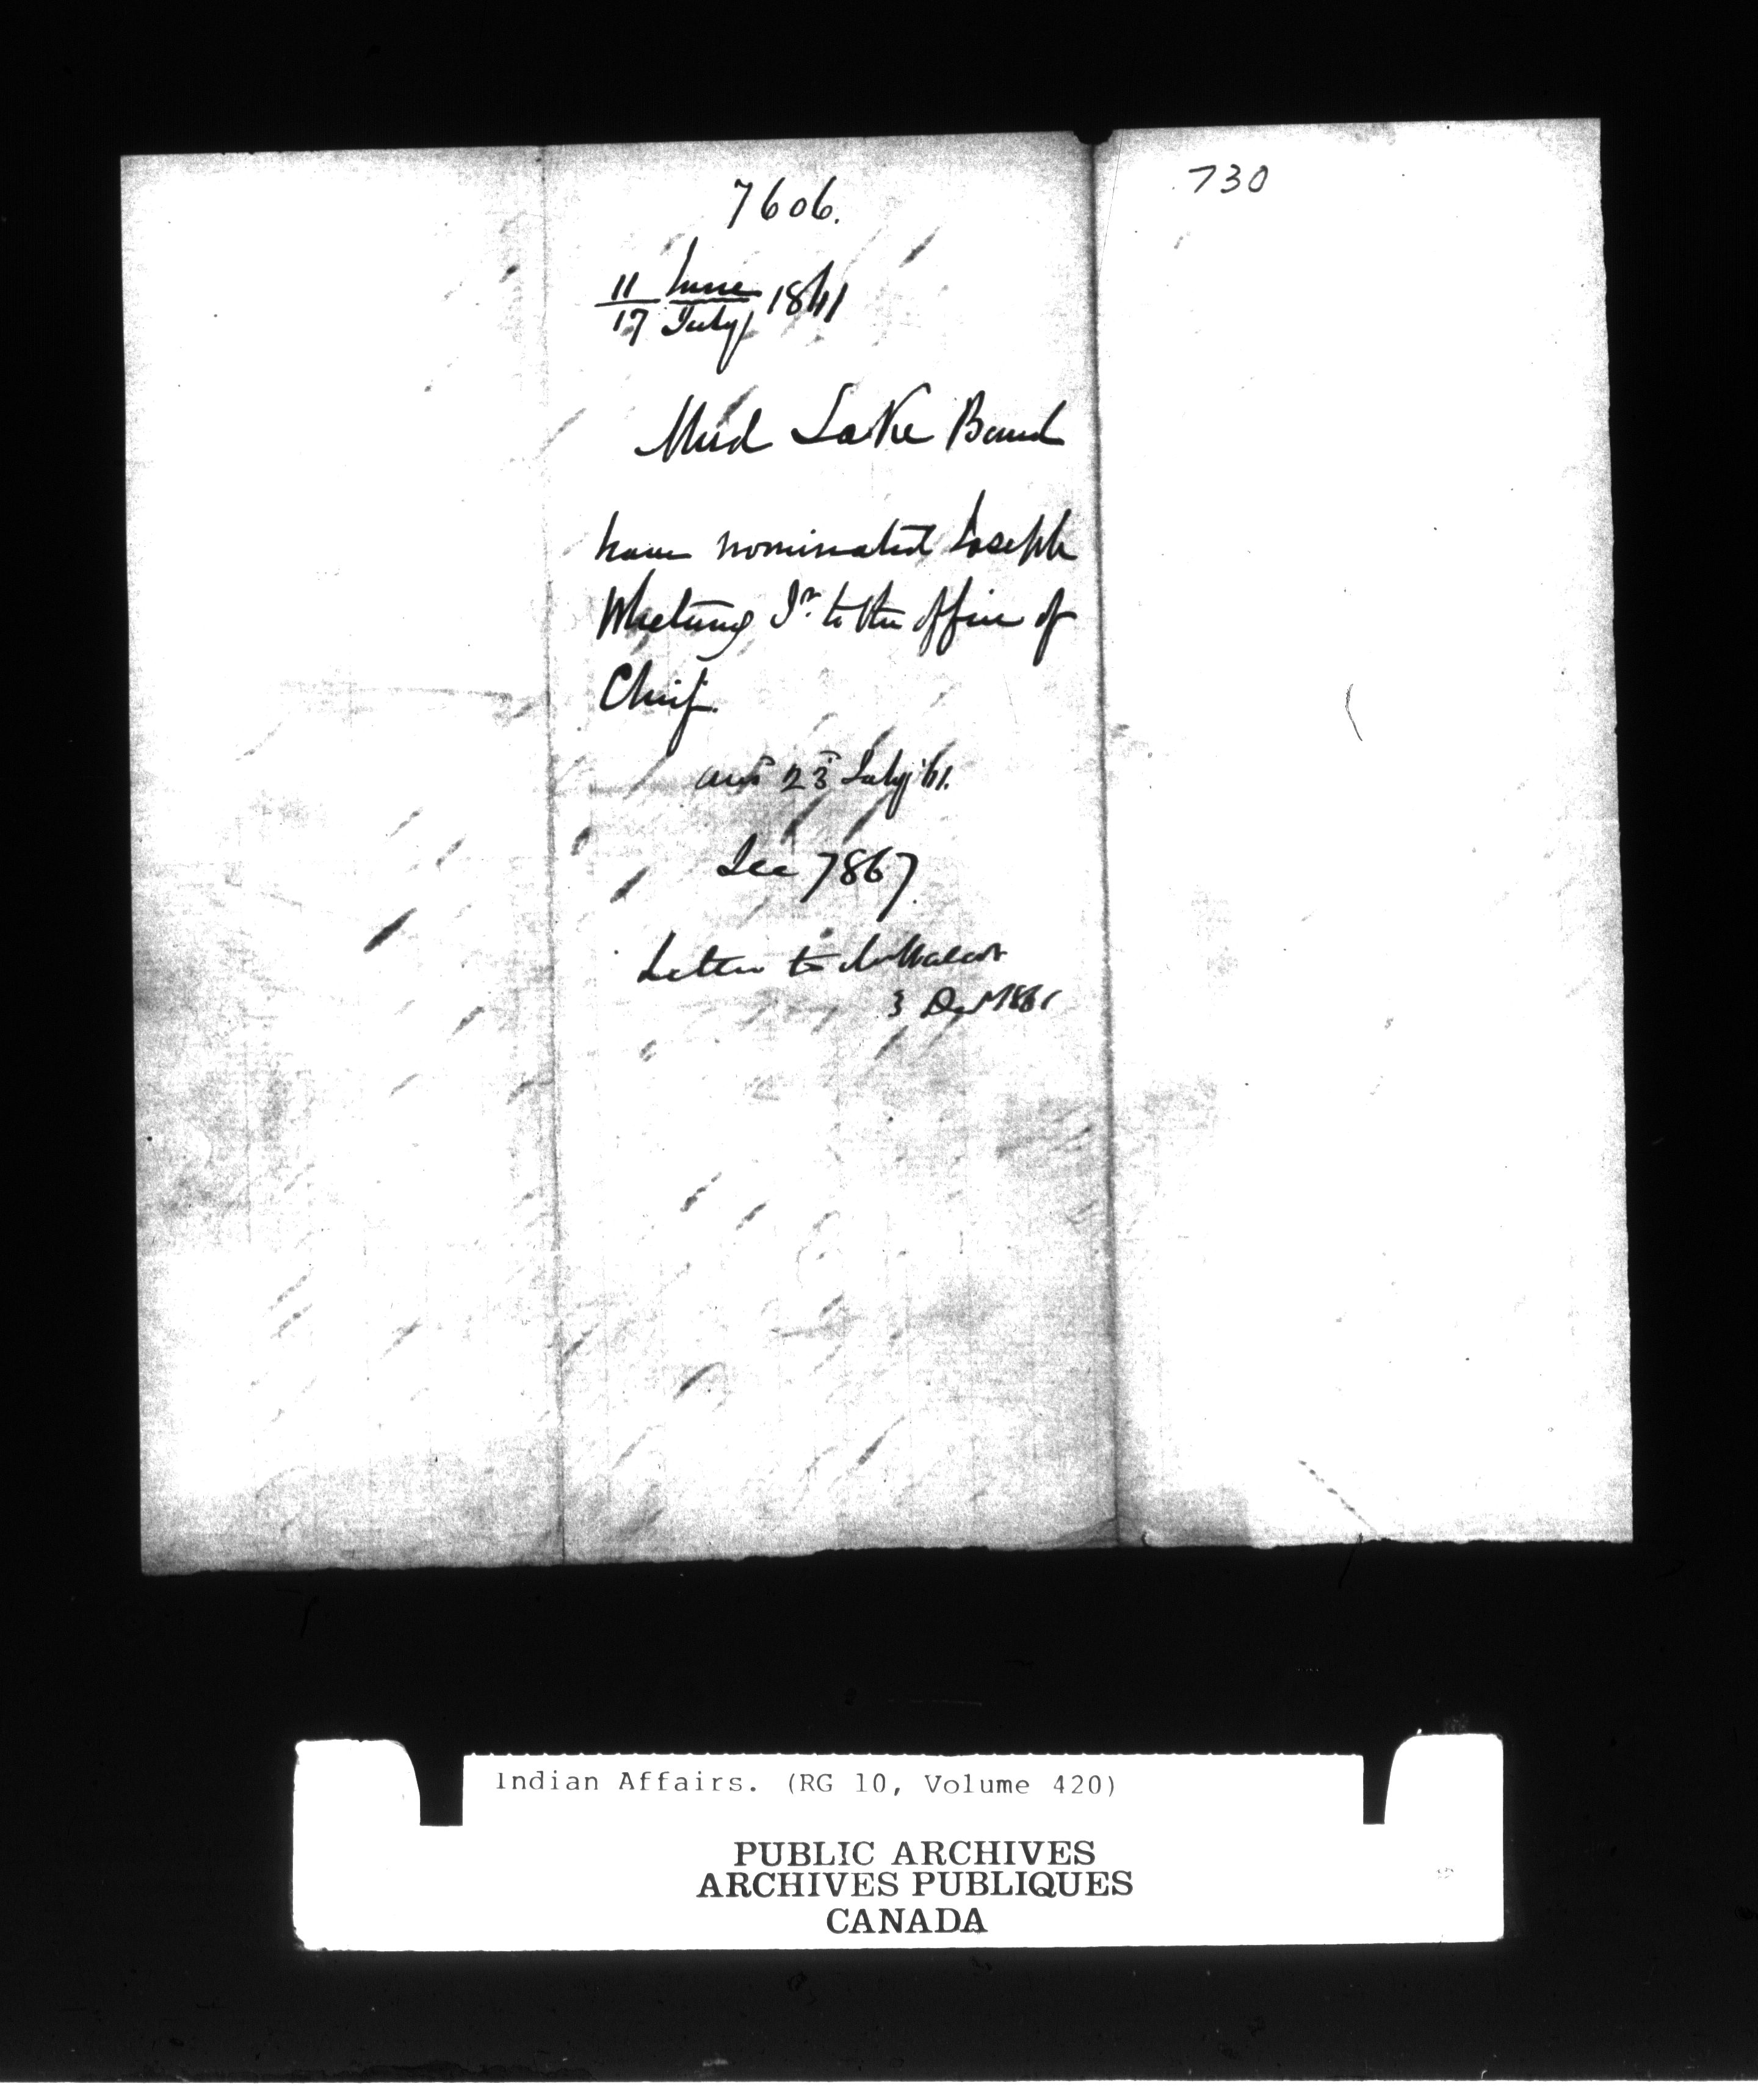 730
7606.
11 June
17 July 1861
Mud Lake Band
have nominated Joseph
Whetung Jr. to the office of
Chief.
ansd 23d July '61.
See 7867.
Letter to
3 1861
Indian Affairs. (RG 10, Volume 420)
PUBLIC ARCHIVES
ARCHIVES PUBLIQUES
CANADA